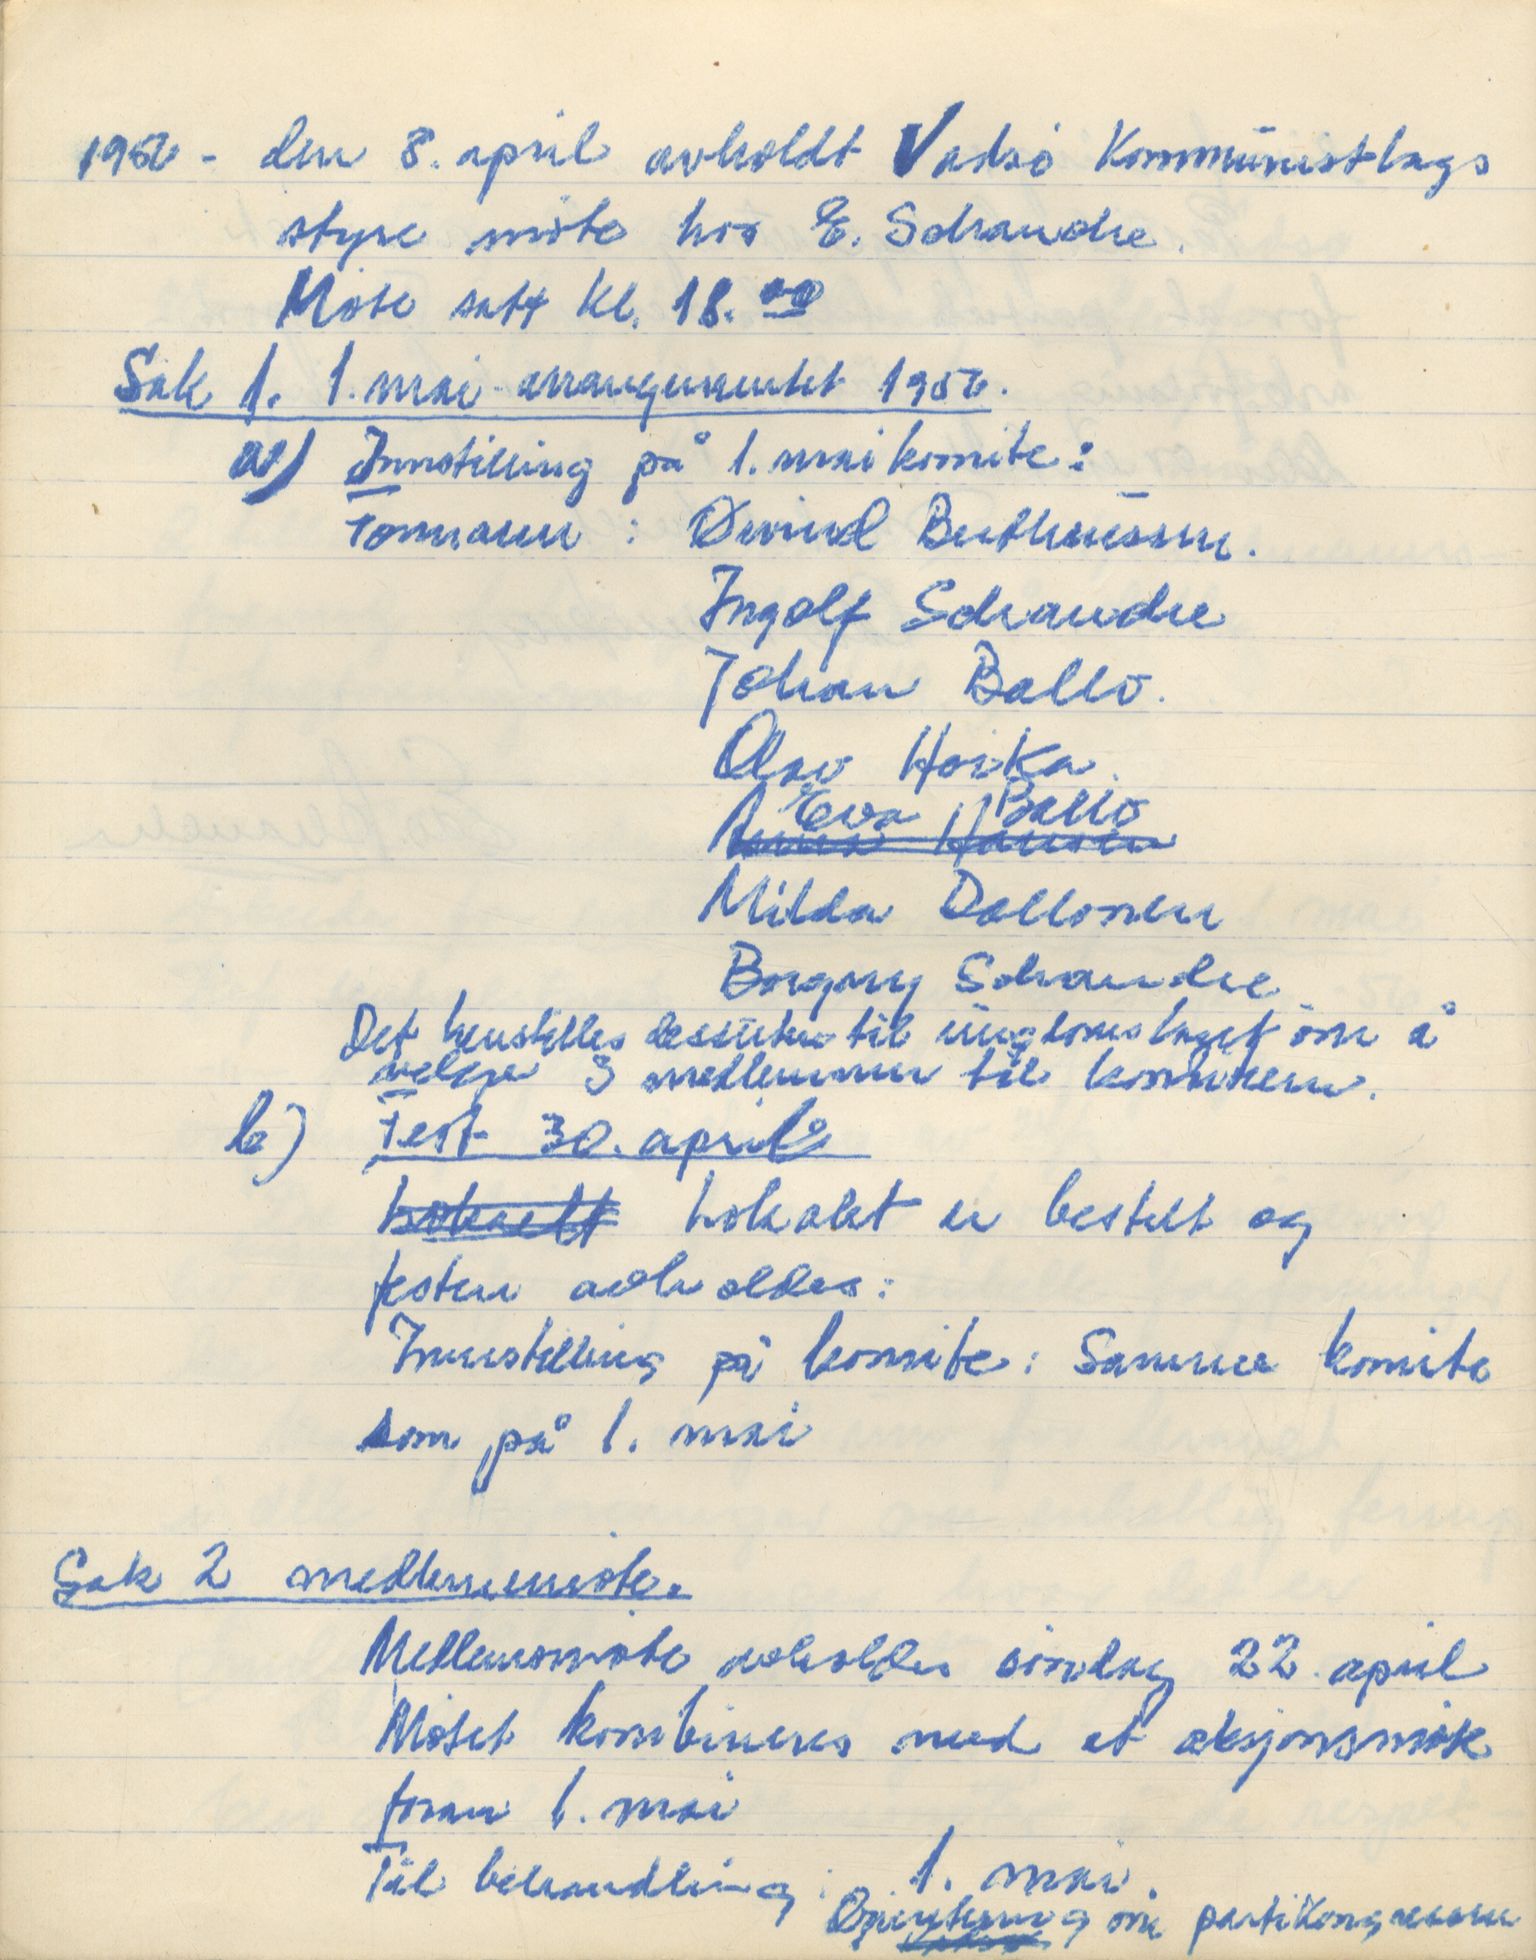 1956 - den 8. april avholdt Vadsø Kommunistlags
styre møte hos E. Schrandre.
Møte satt kl. 18.00
Sak 1. 1. mai-arrangementet 1956.
a) Innstilling på 1. mai komite:
Formann: Øivind Berthinussen.
Ingolf Schrandre
Johan Ballo.
Olav Hoika.
Eva Ballo
Anna Hansen
Milda Dallonen
Borgny Schrandre
Det henstilles dessuten til ungdomslaget om å
velge 3 medlemmer til komiteen.
b) Fest 30. april
Lokalet Lokalet er bestilt og
festen avholdes:
Innstilling på komite: Samme komite
som på 1. mai
Sak 2 medlemmøte.
Medlemsmøte avholdes søndag 22 april
Møtet kombineres med et aksjonsmøte
foran 1. mai
Til behandling: 1. mai.
Orientering om partikongressen